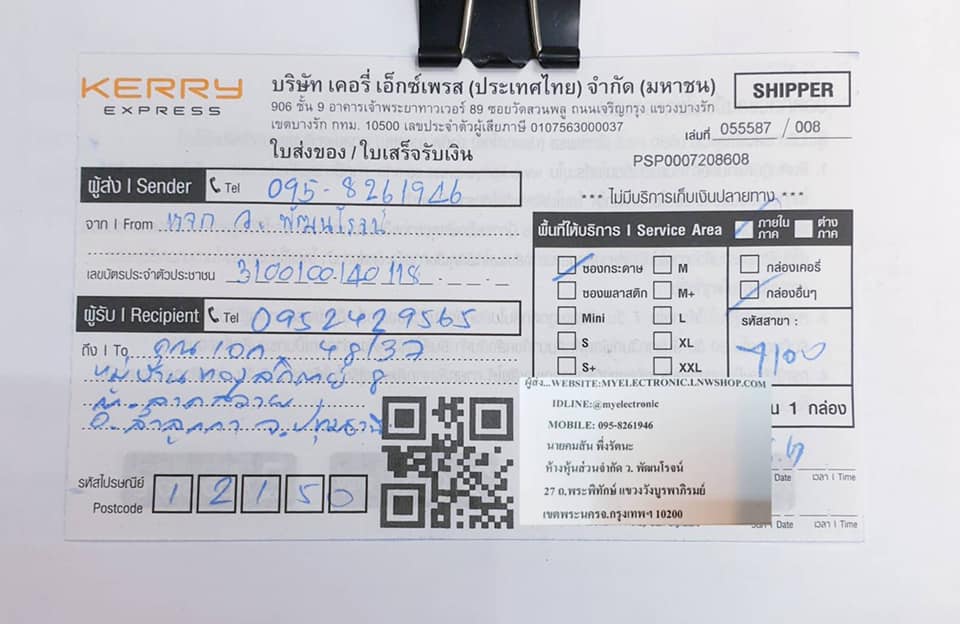 KERRY
EXPRESS
บริษัท เคอรี่ เอ็กซ์เพรส (ประเทศไทย) จำกัด (มหาชน)
906 ชั้น 9 อาคารเจ้าพระยาทาวเวอร์ 89 ซอยวัดสวนพลู ถนนเจริญกรุง แขวงบางรัก
เขตบางรัก กทม. 10500 เลขประจำตัวผู้เสียภาษี 0107563000037
ใบส่งของ / ใบเสร็จรับเงิน
SHIPPER
เล่มที่ 055587 / 008
PSP0007208608
*** ไม่มีบริการเก็บเงินปลายทาง ***
ผู้ส่ง | Sender Tel 095-8261946
จาก | From หจก ว. พัฒนโรจน์
เลขบัตรประจำตัวประชาชน 3100100140118
ผู้รับ | Recipient Tel 0952429565
ถึง | To คุณเอก 48/37
หมู่บ้าน ทองสถิตย์ 8
ต. ลาดสวาย
อ. ลำลูกกา จ. ปทุมธานี
รหัสไปรษณีย์
Postcode 12150
พื้นที่ให้บริการ | Service Area ภายในภาค ต่างภาค
ซองกระดาษ M กล่องเคอรี่
ซองพลาสติก M+ กล่องอื่นๆ
Mini L รหัสสาขา :
S XL
S+ XXL
1 กล่อง
ผู้ส่ง...WEBSITE:MYELECTRONIC.LNWSHOP.COM
IDLINE:@myelectronic
MOBILE: 095-8261946
นายคมสัน พึ่งรัตนะ
ห้างหุ้นส่วนจำกัด ว. พัฒนโรจน์
27 ถ.พระพิทักษ์ แขวงวังบูรพาภิรมย์
เขตพระนครจ.กรุงเทพฯ 10200
Date เวลา | Time
Date เวลา | Time